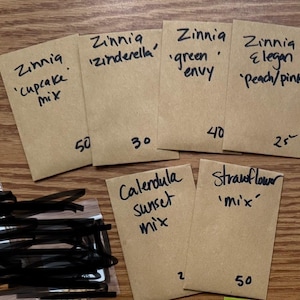 Zinnia
'cupcake
mix
50
Zinnia
'zinderella'
30
Zinnia
'green
envy
40
Zinnia
Elegan
'peach/pink
25
Calendula
sunset
mix
2
Strawflower
'mix'
50